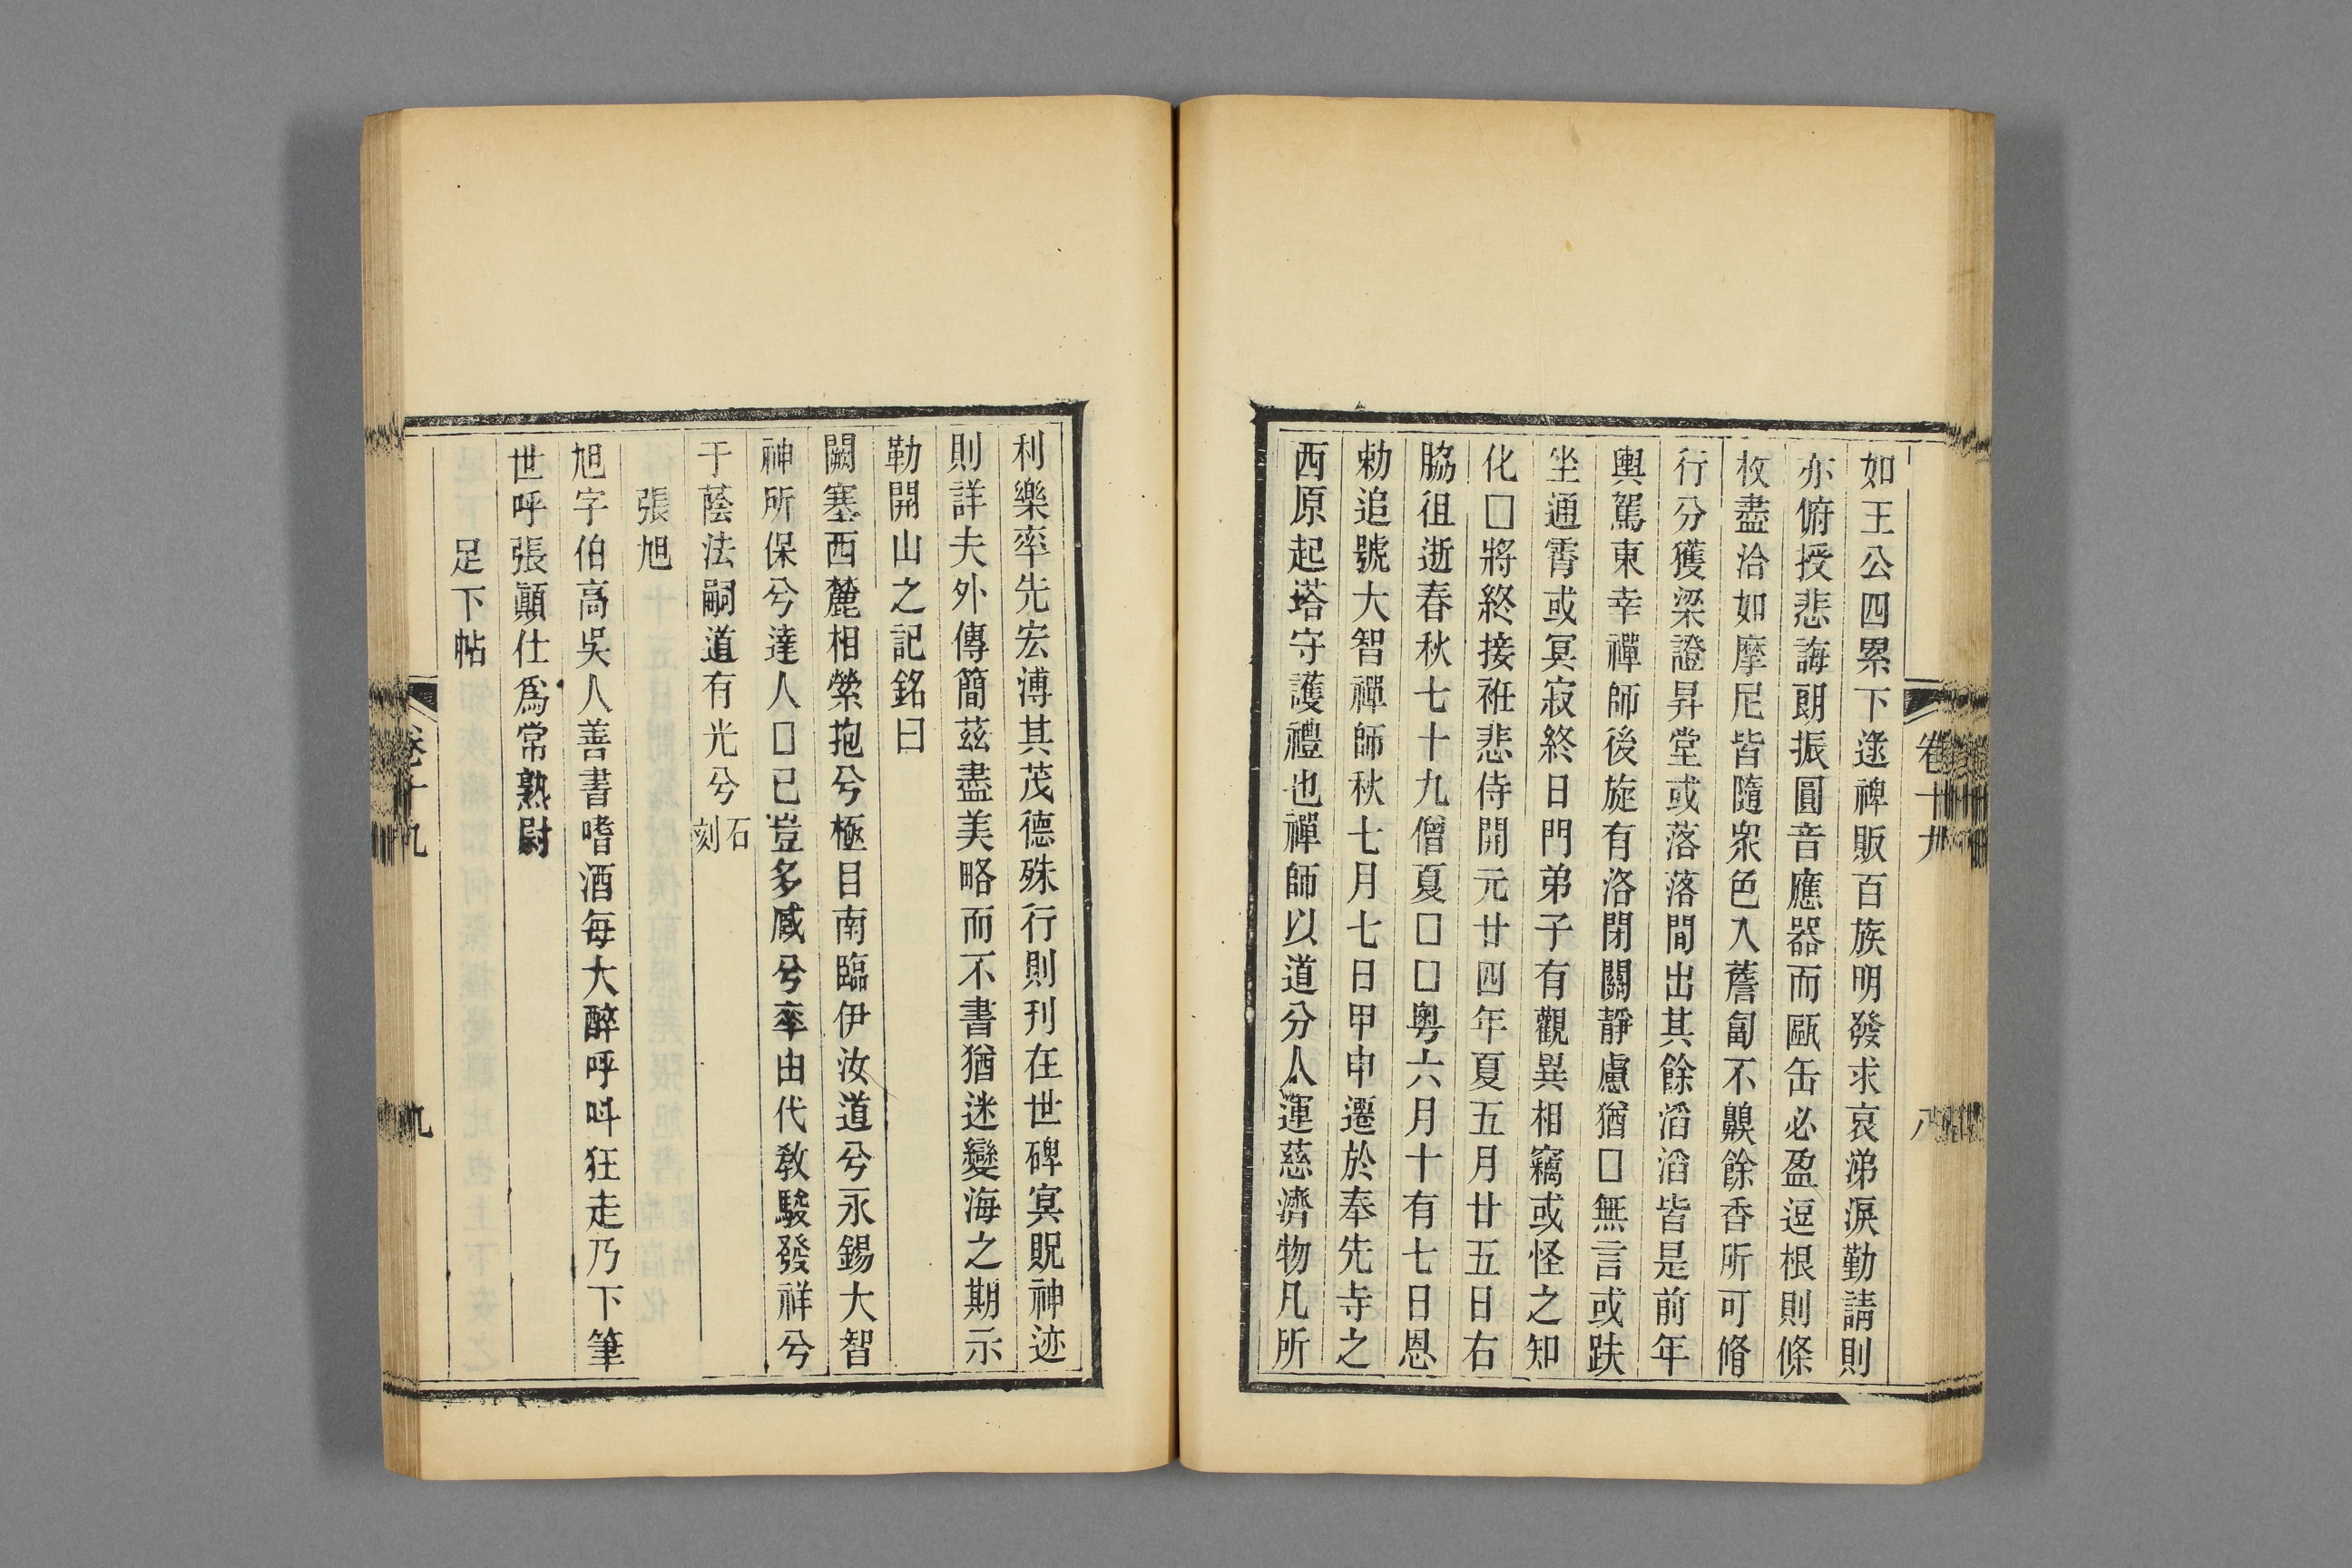 如王公四累下逮禆販百族明發求哀涕淚勤請則
亦俯授悲誨朗振圓音應器而甌缶必盈逗根則條
枚盡洽如摩尼皆隨衆色入薝蔔不齅餘香所可脩
行分獲梁證昇堂或落落間出其餘滔滔皆是前年
輿駕東幸禪師後旋有洛閉關靜慮猶□無言或趺
坐通霄或冥寂終日門弟子有觀異相竊或怪之知
化□將終接袵悲侍開元廿四年夏五月廿五日右
脇徂逝春秋七十九僧夏□□粤六月十有七日恩
勅追號大智禪師秋七月七日甲申遷於奉先寺之
西原起塔守護禮也禪師以道分人運慈濟物凡所
卷十九
八
利樂率先宏溥其茂德殊行則刊在世碑冥貺神迹
則詳夫外傳簡茲盡美略而不書猶迷變海之期示
勒開山之記銘曰
闕塞西麓相縈抱兮極目南臨伊汝道兮永錫大智
神所保兮達人□已豈多慼兮率由代敎駿發祥兮
于蔭法嗣道有光兮石刻
張旭
旭字伯高吳人善書嗜酒每大醉呼呌狂走乃下筆
世呼張顚仕爲常熟尉
足下帖
卷十九
九